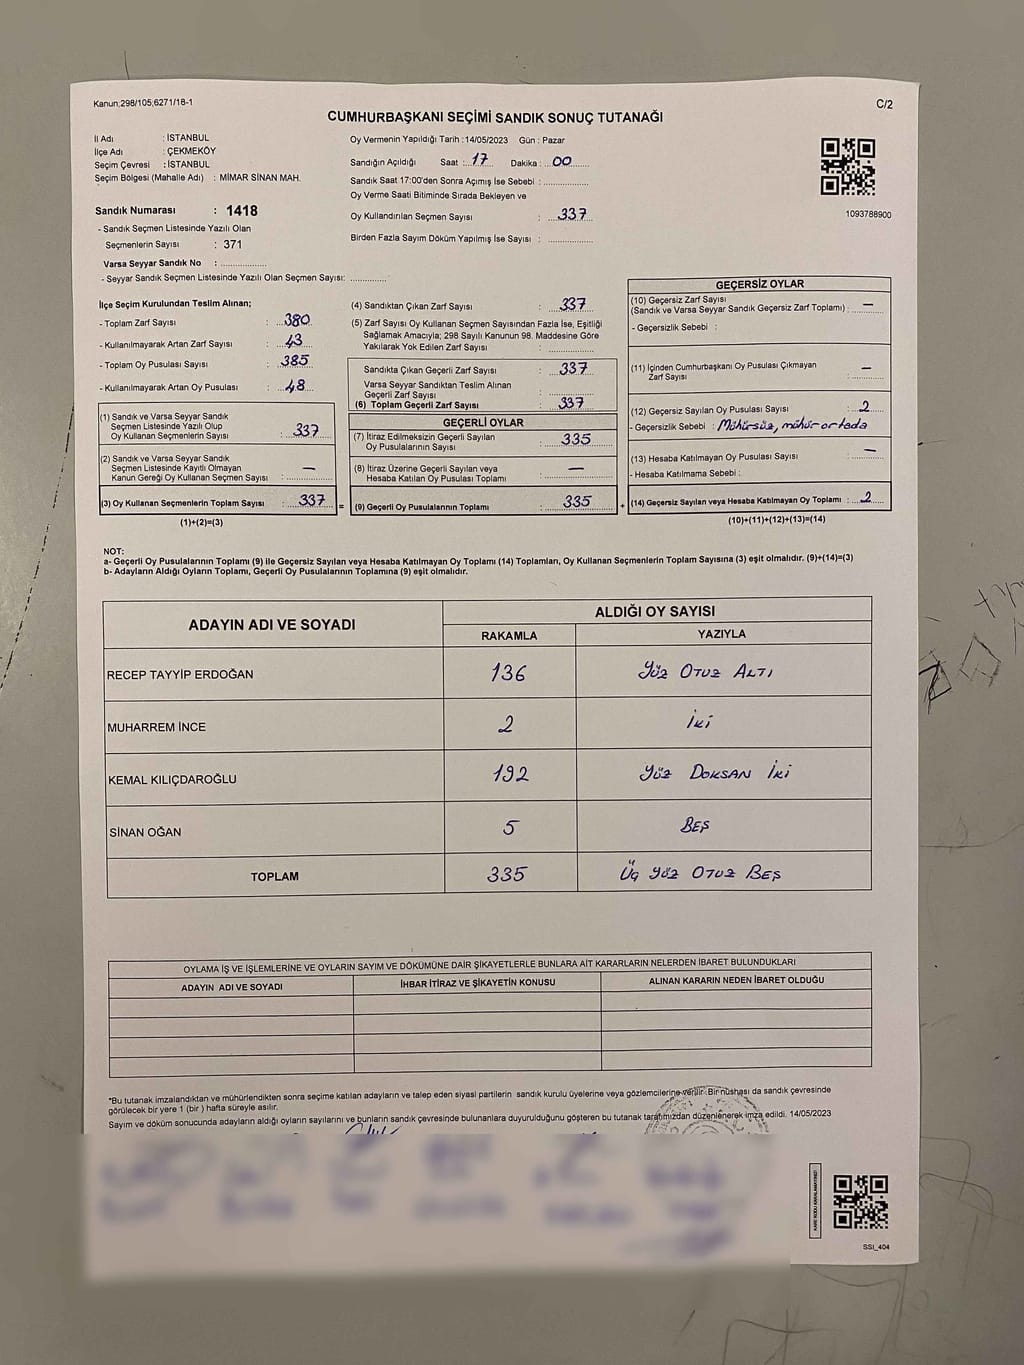 Kanun;298/105;6271/18-1
C/2
CUMHURBAŞKANI SEÇİMİ SANDIK SONUÇ TUTANAĞI
İl Adı : İSTANBUL
İlçe Adı : ÇEKMEKÖY
Seçim Çevresi : İSTANBUL
Seçim Bölgesi (Mahalle Adı) : MİMAR SİNAN MAH.
Sandık Numarası : 1418
- Sandık Seçmen Listesinde Yazılı Olan
Seçmenlerin Sayısı : 371
Varsa Seyyar Sandık No : ....................
- Seyyar Sandık Seçmen Listesinde Yazılı Olan Seçmen Sayısı: ..............
Oy Vermenin Yapıldığı Tarih : 14/05/2023 Gün : Pazar
Sandığın Açıldığı Saat : 17 Dakika : 00
Sandık Saat 17:00'den Sonra Açımış İse Sebebi : ....................
Oy Verme Saati Bitiminde Sırada Bekleyen ve
Oy Kullandırılan Seçmen Sayısı : 337
Birden Fazla Sayım Döküm Yapılmış İse Sayısı : ....................
1093788900
İlçe Seçim Kurulundan Teslim Alınan;
- Toplam Zarf Sayısı : 380
- Kullanılmayarak Artan Zarf Sayısı : 43
- Toplam Oy Pusulası Sayısı : 385
- Kullanılmayarak Artan Oy Pusulası : 48
(1) Sandık ve Varsa Seyyar Sandık
Seçmen Listesinde Yazılı Olup
Oy Kullanan Seçmenlerin Sayısı : 337
(2) Sandık ve Varsa Seyyar Sandık
Seçmen Listesinde Kayıtlı Olmayan
Kanun Gereği Oy Kullanan Seçmen Sayısı : —
(3) Oy Kullanan Seçmenlerin Toplam Sayısı : 337
(1)+(2)=(3)
(4) Sandıktan Çıkan Zarf Sayısı : 337
(5) Zarf Sayısı Oy Kullanan Seçmen Sayısından Fazla İse, Eşitliği
Sağlamak Amacıyla; 298 Sayılı Kanunun 98. Maddesine Göre
Yakılarak Yok Edilen Zarf Sayısı : ..............
Sandıkta Çıkan Geçerli Zarf Sayısı : 337
Varsa Seyyar Sandıktan Teslim Alınan
Geçerli Zarf Sayısı : ..............
(6) Toplam Geçerli Zarf Sayısı : 337
GEÇERLİ OYLAR
(7) İtiraz Edilmeksizin Geçerli Sayılan
Oy Pusulalarının Sayısı : 335
(8) İtiraz Üzerine Geçerli Sayılan veya
Hesaba Katılan Oy Pusulası Toplamı : —
= (9) Geçerli Oy Pusulalarının Toplamı : 335 +
GEÇERSİZ OYLAR
(10) Geçersiz Zarf Sayısı
(Sandık ve Varsa Seyyar Sandık Geçersiz Zarf Toplamı) : —
- Geçersizlik Sebebi :
(11) İçinden Cumhurbaşkanı Oy Pusulası Çıkmayan
Zarf Sayısı : —
(12) Geçersiz Sayılan Oy Pusulası Sayısı : 2
- Geçersizlik Sebebi : Mühürsüz, mühür ortada
(13) Hesaba Katılmayan Oy Pusulası Sayısı : —
- Hesaba Katılmama Sebebi :
(14) Geçersiz Sayılan veya Hesaba Katılmayan Oy Toplamı : 2
(10)+(11)+(12)+(13)=(14)
NOT:
a- Geçerli Oy Pusulalarının Toplamı (9) ile Geçersiz Sayılan veya Hesaba Katılmayan Oy Toplamı (14) Toplamları, Oy Kullanan Seçmenlerin Toplam Sayısına (3) eşit olmalıdır. (9)+(14)=(3)
b- Adayların Aldığı Oyların Toplamı, Geçerli Oy Pusulalarının Toplamına (9) eşit olmalıdır.
ADAYIN ADI VE SOYADI
ALDIĞI OY SAYISI
RAKAMLA YAZIYLA
RECEP TAYYİP ERDOĞAN 136 YÜZ OTUZ ALTI
MUHARREM İNCE 2 İKİ
KEMAL KILIÇDAROĞLU 192 YÜZ DOKSAN İKİ
SİNAN OĞAN 5 BEŞ
TOPLAM 335 ÜÇ YÜZ OTUZ BEŞ
OYLAMA İŞ VE İŞLEMLERİNE VE OYLARIN SAYIM VE DÖKÜMÜNE DAİR ŞİKAYETLERLE BUNLARA AİT KARARLARIN NELERDEN İBARET BULUNDUKLARI
ADAYIN ADI VE SOYADI İHBAR İTİRAZ VE ŞİKAYETİN KONUSU ALINAN KARARIN NEDEN İBARET OLDUĞU
*Bu tutanak imzalandıktan ve mühürlendikten sonra seçime katılan adayların ve talep eden siyasi partilerin sandık kurulu üyelerine veya gözlemcilerine verilir. Bir nüshası da sandık çevresinde
görülecek bir yere 1 (bir ) hafta süreyle asılır.
Sayım ve döküm sonucunda adayların aldığı oyların sayılarını ve bunların sandık çevresinde bulunanlara duyurulduğunu gösteren bu tutanak tarafımızdan düzenlenerek imza edildi. 14/05/2023
KARE KODU KARALAMAYINIZ!
SSI_404